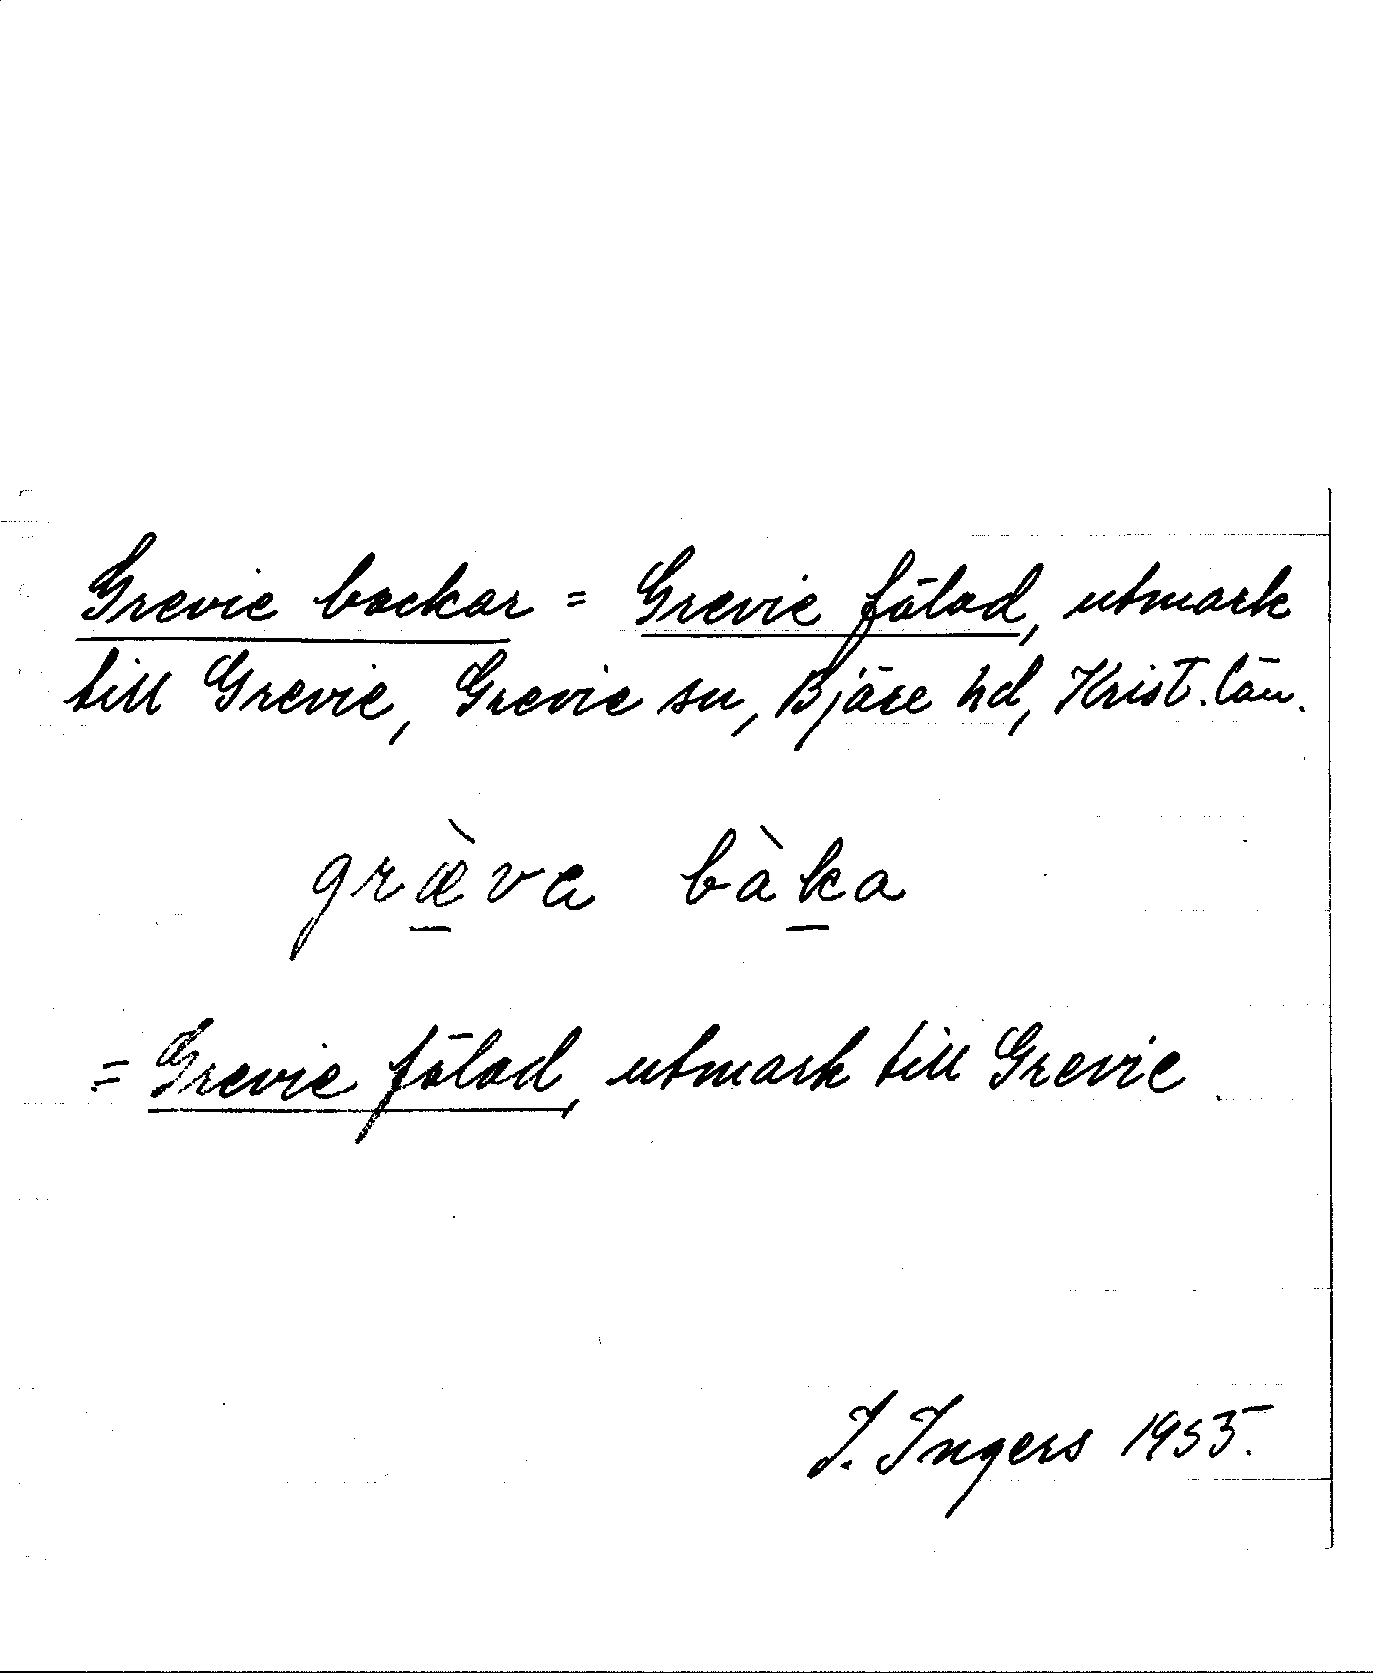 Grevie backar = Grevie fälad, utmark
till Grevie, Grevie sn, Bjäre hd, Krist. län.
græ̀va bàka
= Grevie fälad, utmark till Grevie
I. Ingers 1955.